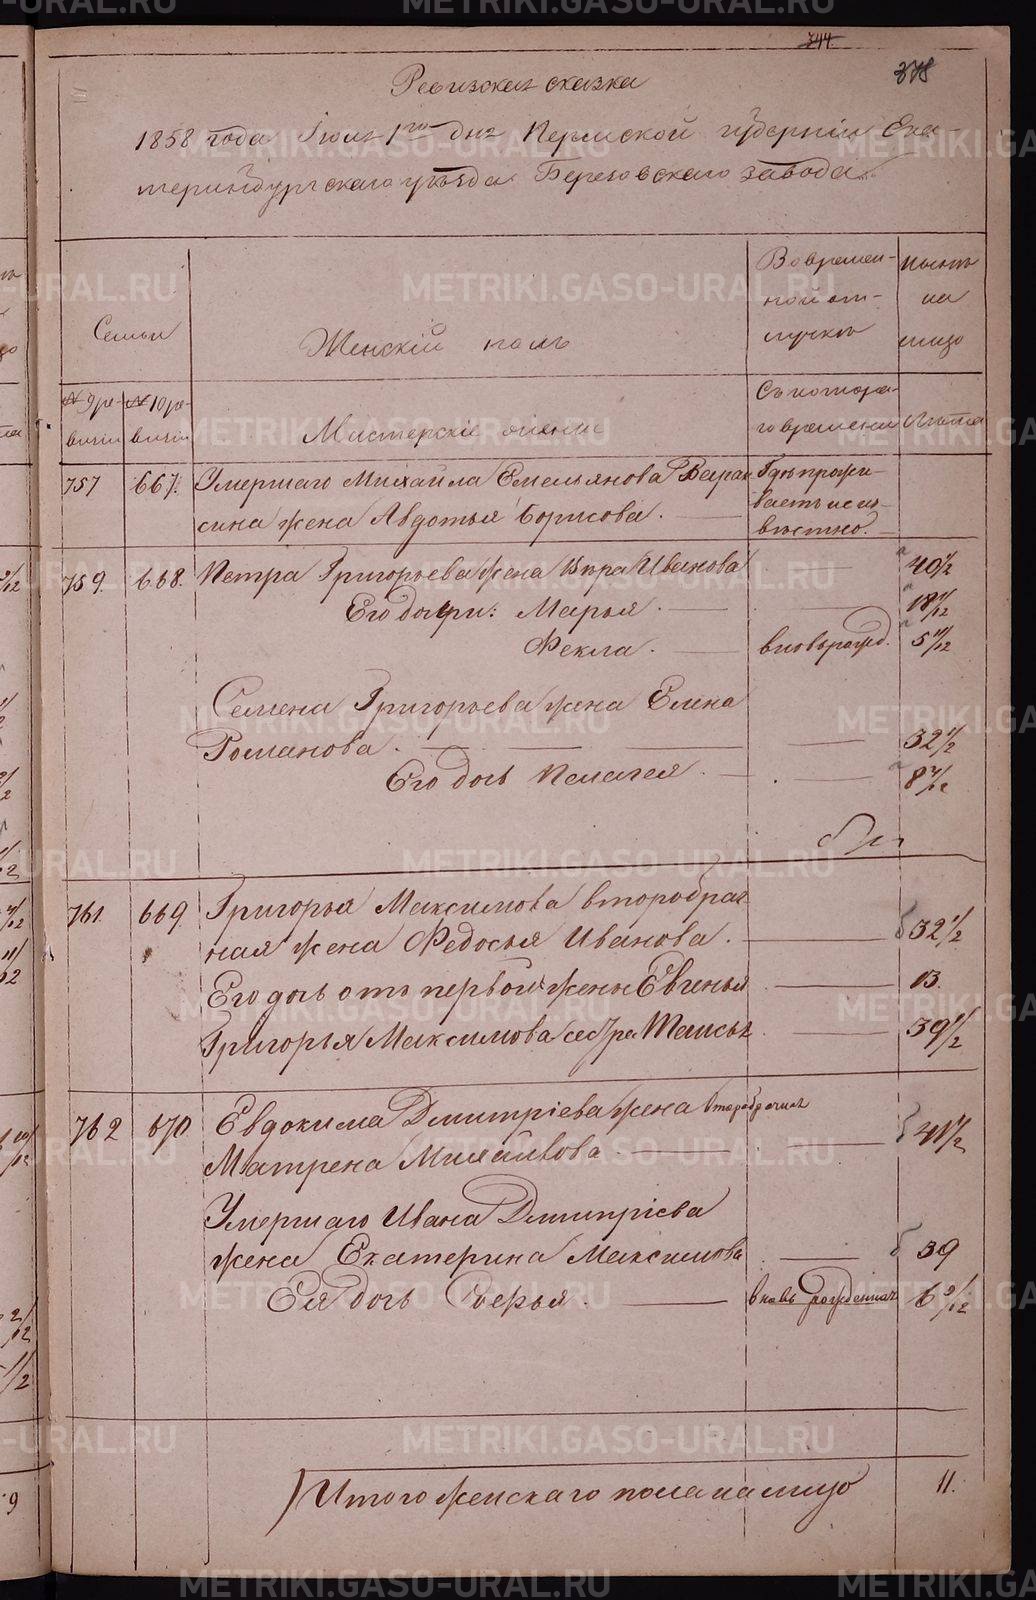 344.
378
Ревизская сказка
1858 года Iюля 1го дня Пермской губернiи Ека
теринбургскаго уѣзда Березовскаго завода
Семьи
Женскiй полъ
Во времен-
ной от-
лучкѣ
Нынѣ
на
лицо
№ 9 ре-
визiи
№ 10 ре-
визiи
Мастерскiе
Съ котора-
го времени
Лѣта
757 667. Умершаго Михайла Емельянова Гдѣ прожи-
сина жена Авдотья Борисова. ваетъ не из-
вѣстно.
759. 668. Петра Григорьева жена Вѣра Иванова 40 1/2
Его дочри: Марья. 18 11/12
Фекла. вновьрожд. 5 11/12
Семена Григорьева жена Елена
Романова. 32 1/2
Его дочь Пелагея. 8
761. 669. Григорья Максимова второбрач
ная жена Федосья Иванова. 32 1/2
Его дочь отъ первой жены Евгенья 13.
Григорья Максимова сестра Таисья 39 1/2
762 670 Евдокима Дмитрiева жена второбрачная
Матрена Михайлова 41 1/2
Умершаго Ивана Дмитрiева
жена Екатерина Максимова 39
Ея дочь Дарья. вновь рожденная 6 9/12
Итого женскаго пола на лицо 11.
METRIKI.GASO-URAL.RU